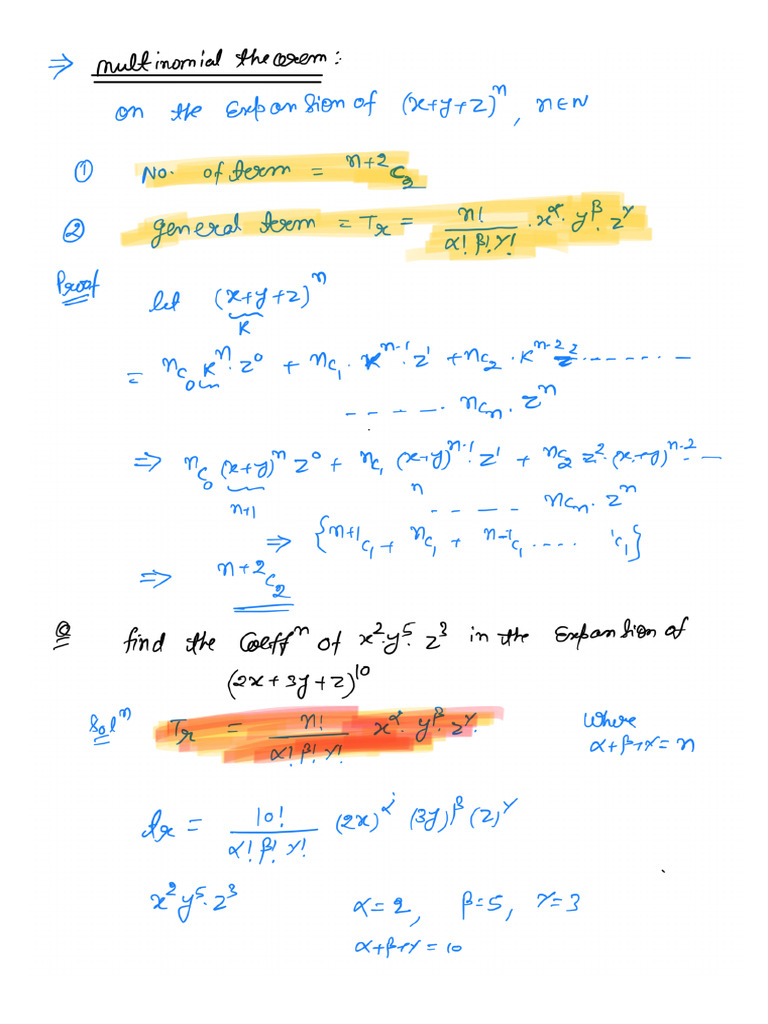 ⇒ multinomial theorem:
on the Expansion of (x+y+z)ⁿ, n∈N
① No. of term = ⁿ⁺²C₂
② general term = Tᵣ = n!/(α! β! γ!) · x^α · y^β · z^γ
Proof
let (x+y+z)ⁿ
K
= ⁿC₀ Kⁿ · z⁰ + ⁿC₁ · Kⁿ⁻¹ · z¹ + ⁿC₂ · Kⁿ⁻² z² ........
- - - - - · ⁿCₙ · zⁿ
⇒ ⁿC₀ (x+y)ⁿ z⁰ + ⁿC₁ (x+y)ⁿ⁻¹ · z¹ + ⁿC₂ z² · (x+y)ⁿ⁻² - - -
n+1 n - - - - - ⁿCₙ · zⁿ
⇒ {ⁿ⁺¹C₁ + ⁿC₁ + ⁿ⁻¹C₁ .... ¹C₁}
⇒ ⁿ⁺²C₂
Q find the Coeffⁿ of x² · y⁵ · z³ in the Expansion of
(2x+3y+z)¹⁰
Solⁿ Tᵣ = n!/(α! β! γ!) x^α · y^β · z^γ Where
α+β+γ = n
tᵣ = 10!/(α! β! γ!) (2x)^α (3y)^β (z)^γ
x² y⁵ · z³ α=2, β=5, γ=3
α+β+γ = 10